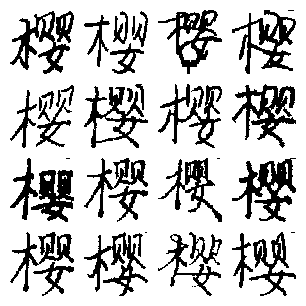 樱樱樱樱
樱樱樱樱
樱樱樱樱
樱樱樱樱